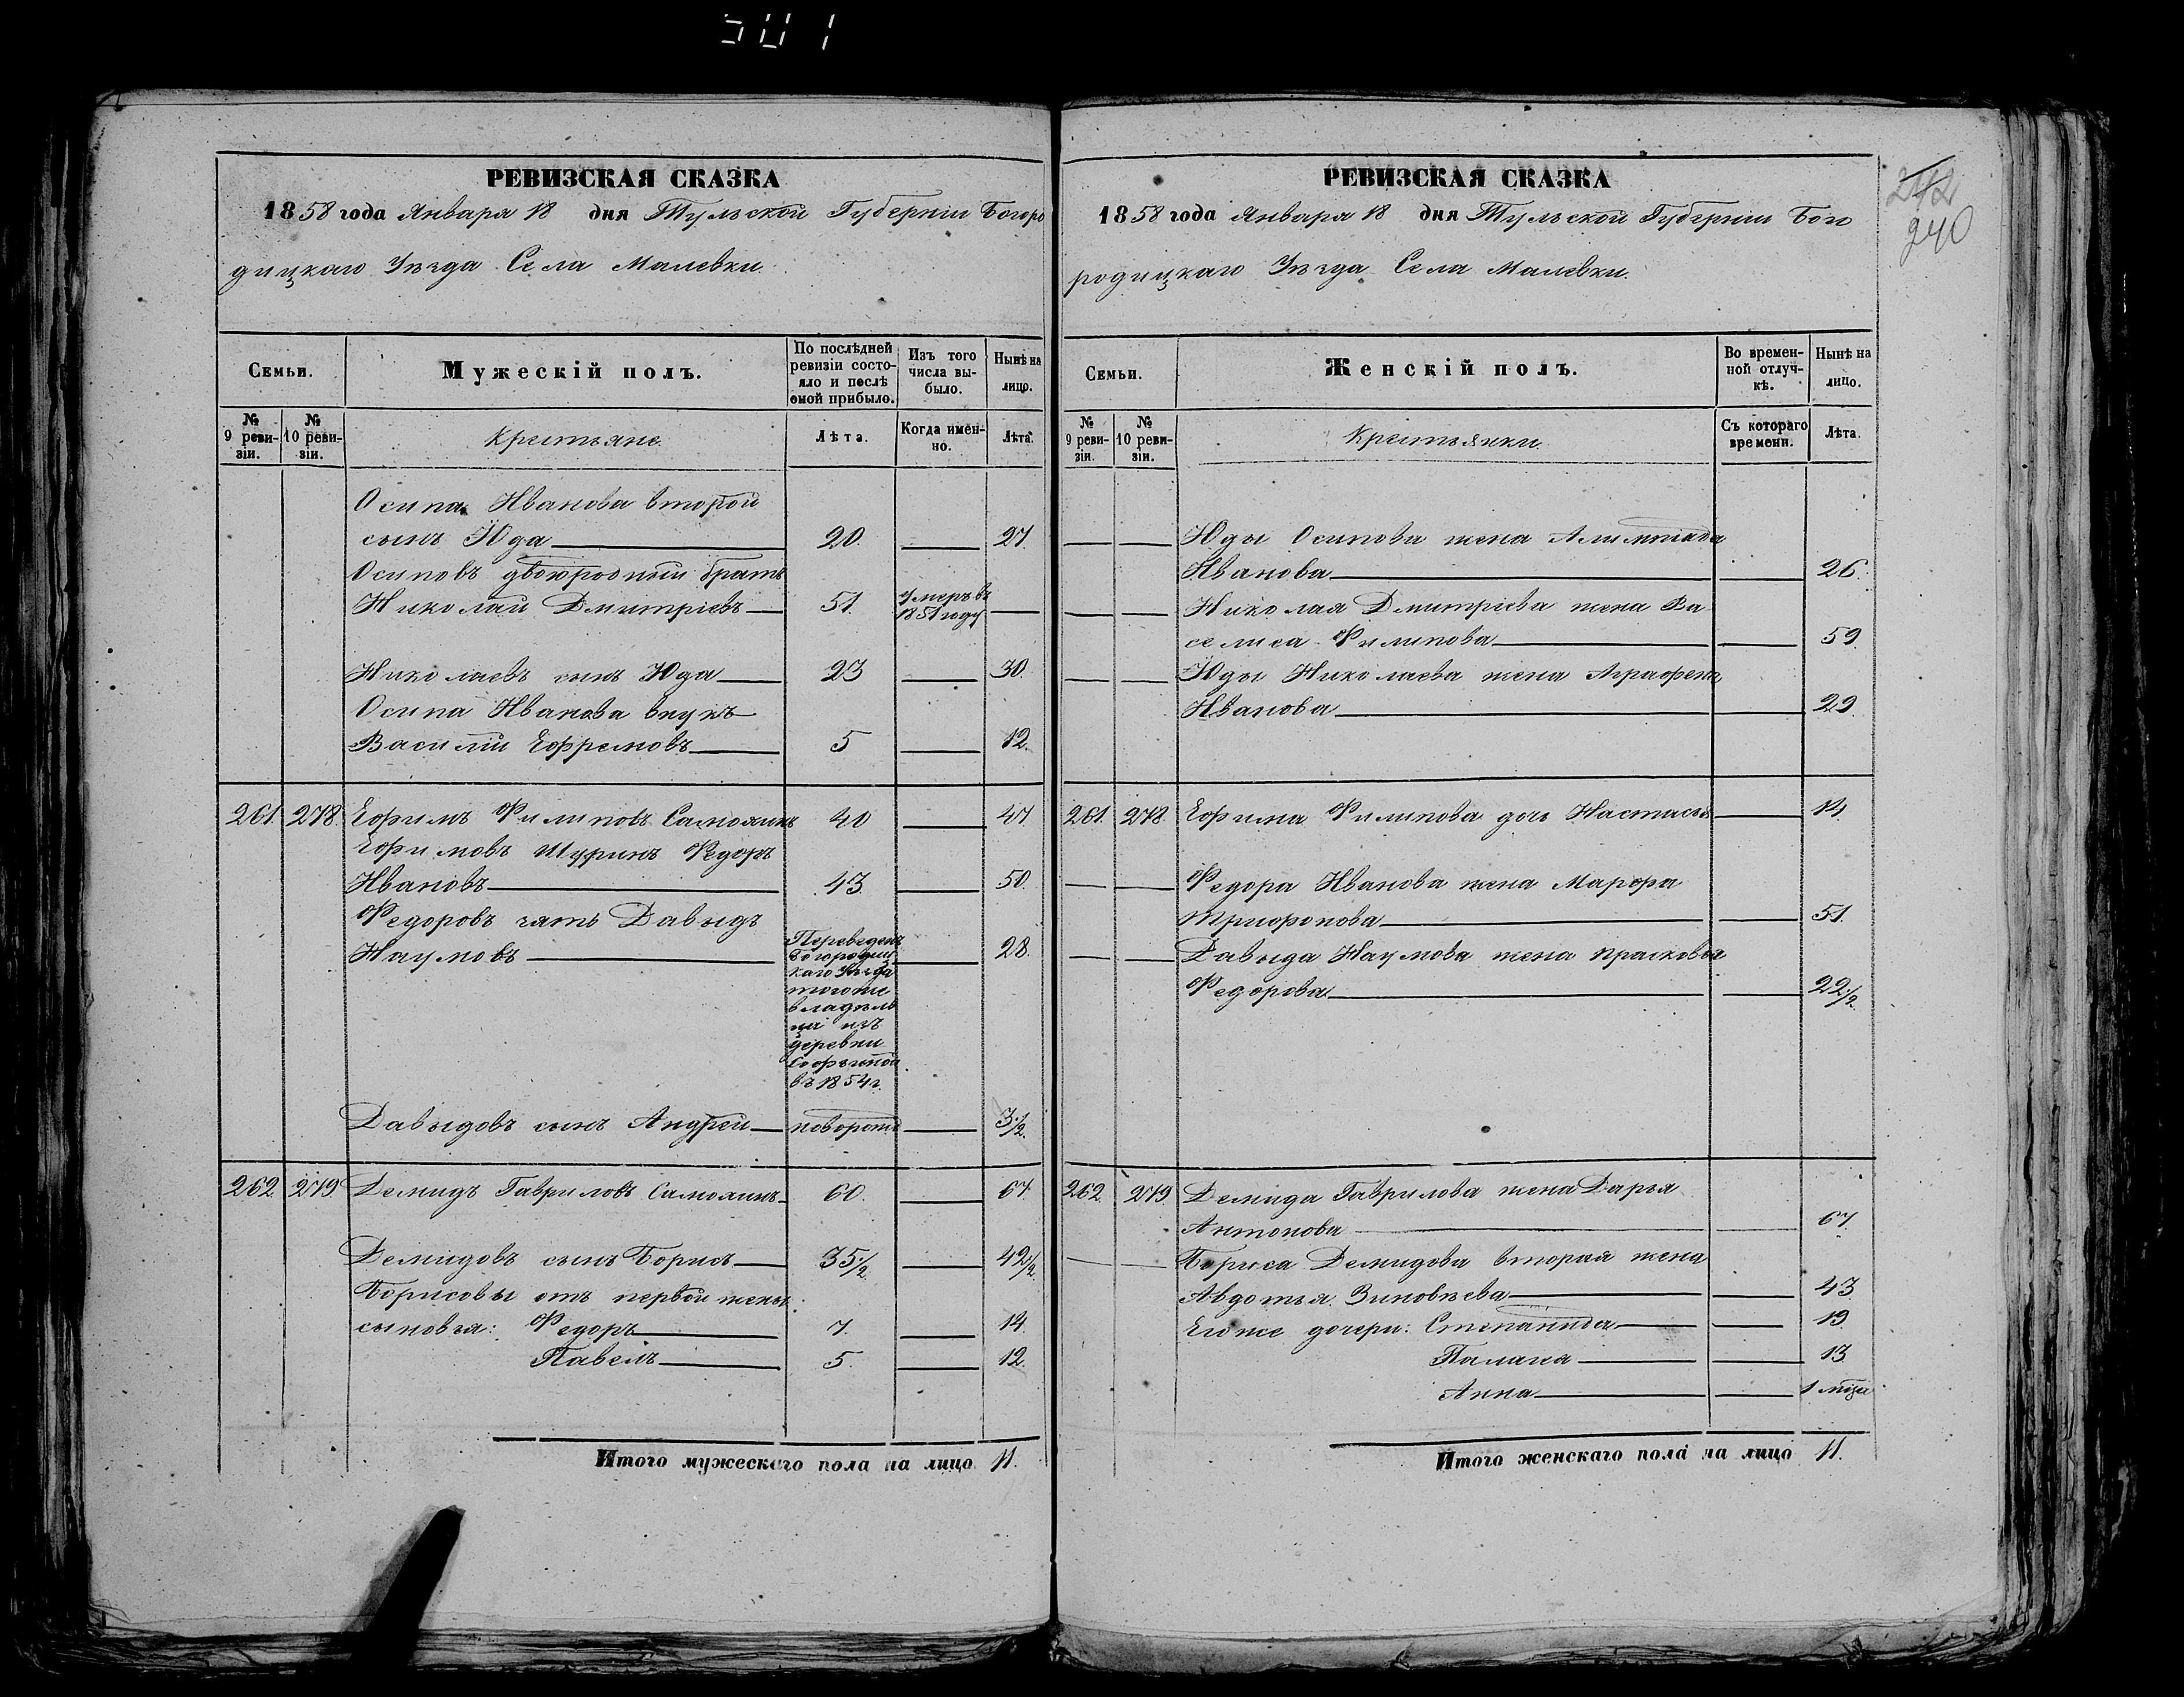 501
РЕВИЗСКАЯ СКАЗКА
1858 года Января 18 дня Тульской Губерніи Богоро
дицкаго Уѣзда Села Малевки.
Семьи.
Мужескій полъ.
По послѣдней ревизіи состояло и послѣ оной прибыло.
Изъ того числа выбыло.
Нынѣ на лицо.
№ 9 ревизіи.
№ 10 ревизіи.
Крестьяне.
Лѣта.
Когда именно.
Лѣта.
Осипа Иванова второй
сынъ Юда 20. 27.
Осиповъ двоюродный братъ
Николай Дмитріевъ 51. умеръ въ 1851 году
Николаевъ сынъ Юда 23 30.
Осипа Иванова внукъ
Василій Ефремовъ 5 12.
261. 278. Ефимъ Филиповъ Самохинъ 40 47.
Ефимовъ Шуринъ Федоръ
Ивановъ 43. 50.
Федоровъ зять Давыдъ
Наумовъ 28.
Переведенъ
Богородиц
каго Уѣзда
тогоже
владѣль
ца изъ
деревни
въ 1854 г.
Давыдовъ сынъ Андрей новорож: 3 1/2.
262. 279. Демидъ Гавриловъ Самохинъ 60. 67.
Демидовъ сынъ Борисъ 35 1/2 42 1/2.
Борисовы отъ первой жены
сыновья: Федоръ 7. 14.
Павелъ 5. 12.
Итого мужескаго пола на лицо 11.
РЕВИЗСКАЯ СКАЗКА
1858 года Января 18 дня Тульской Губерніи Бого
родицкаго Уѣзда Села Малевки.
242
240
Семьи.
Женскій полъ.
Во временной отлучкѣ.
Нынѣ на лицо.
№ 9 ревизіи.
№ 10 ревизіи.
Крестьянки.
Съ котораго времени.
Лѣта.
Юды Осипова жена Алимпіада
Иванова 26.
Николая Дмитріева жена Ва
селиса Филипова 59.
Юды Николаева жена Аграфена
Иванова 29.
261. 278. Ефима Филипова дочь Настасья 14.
Федора Иванова жена Марфа
Трифонова 51.
Давыда Наумова жена Прасковья
Федорова 22 1/2.
262. 279. Демида Гаврилова жена Дарья
Антонова 67.
Бориса Демидова вторая жена
Авдотья Зиновѣева 43.
Егоже дочери: Степанида 19.
Палагея 13.
Анна 1 мѣсе
Итого женскаго пола на лицо 11.